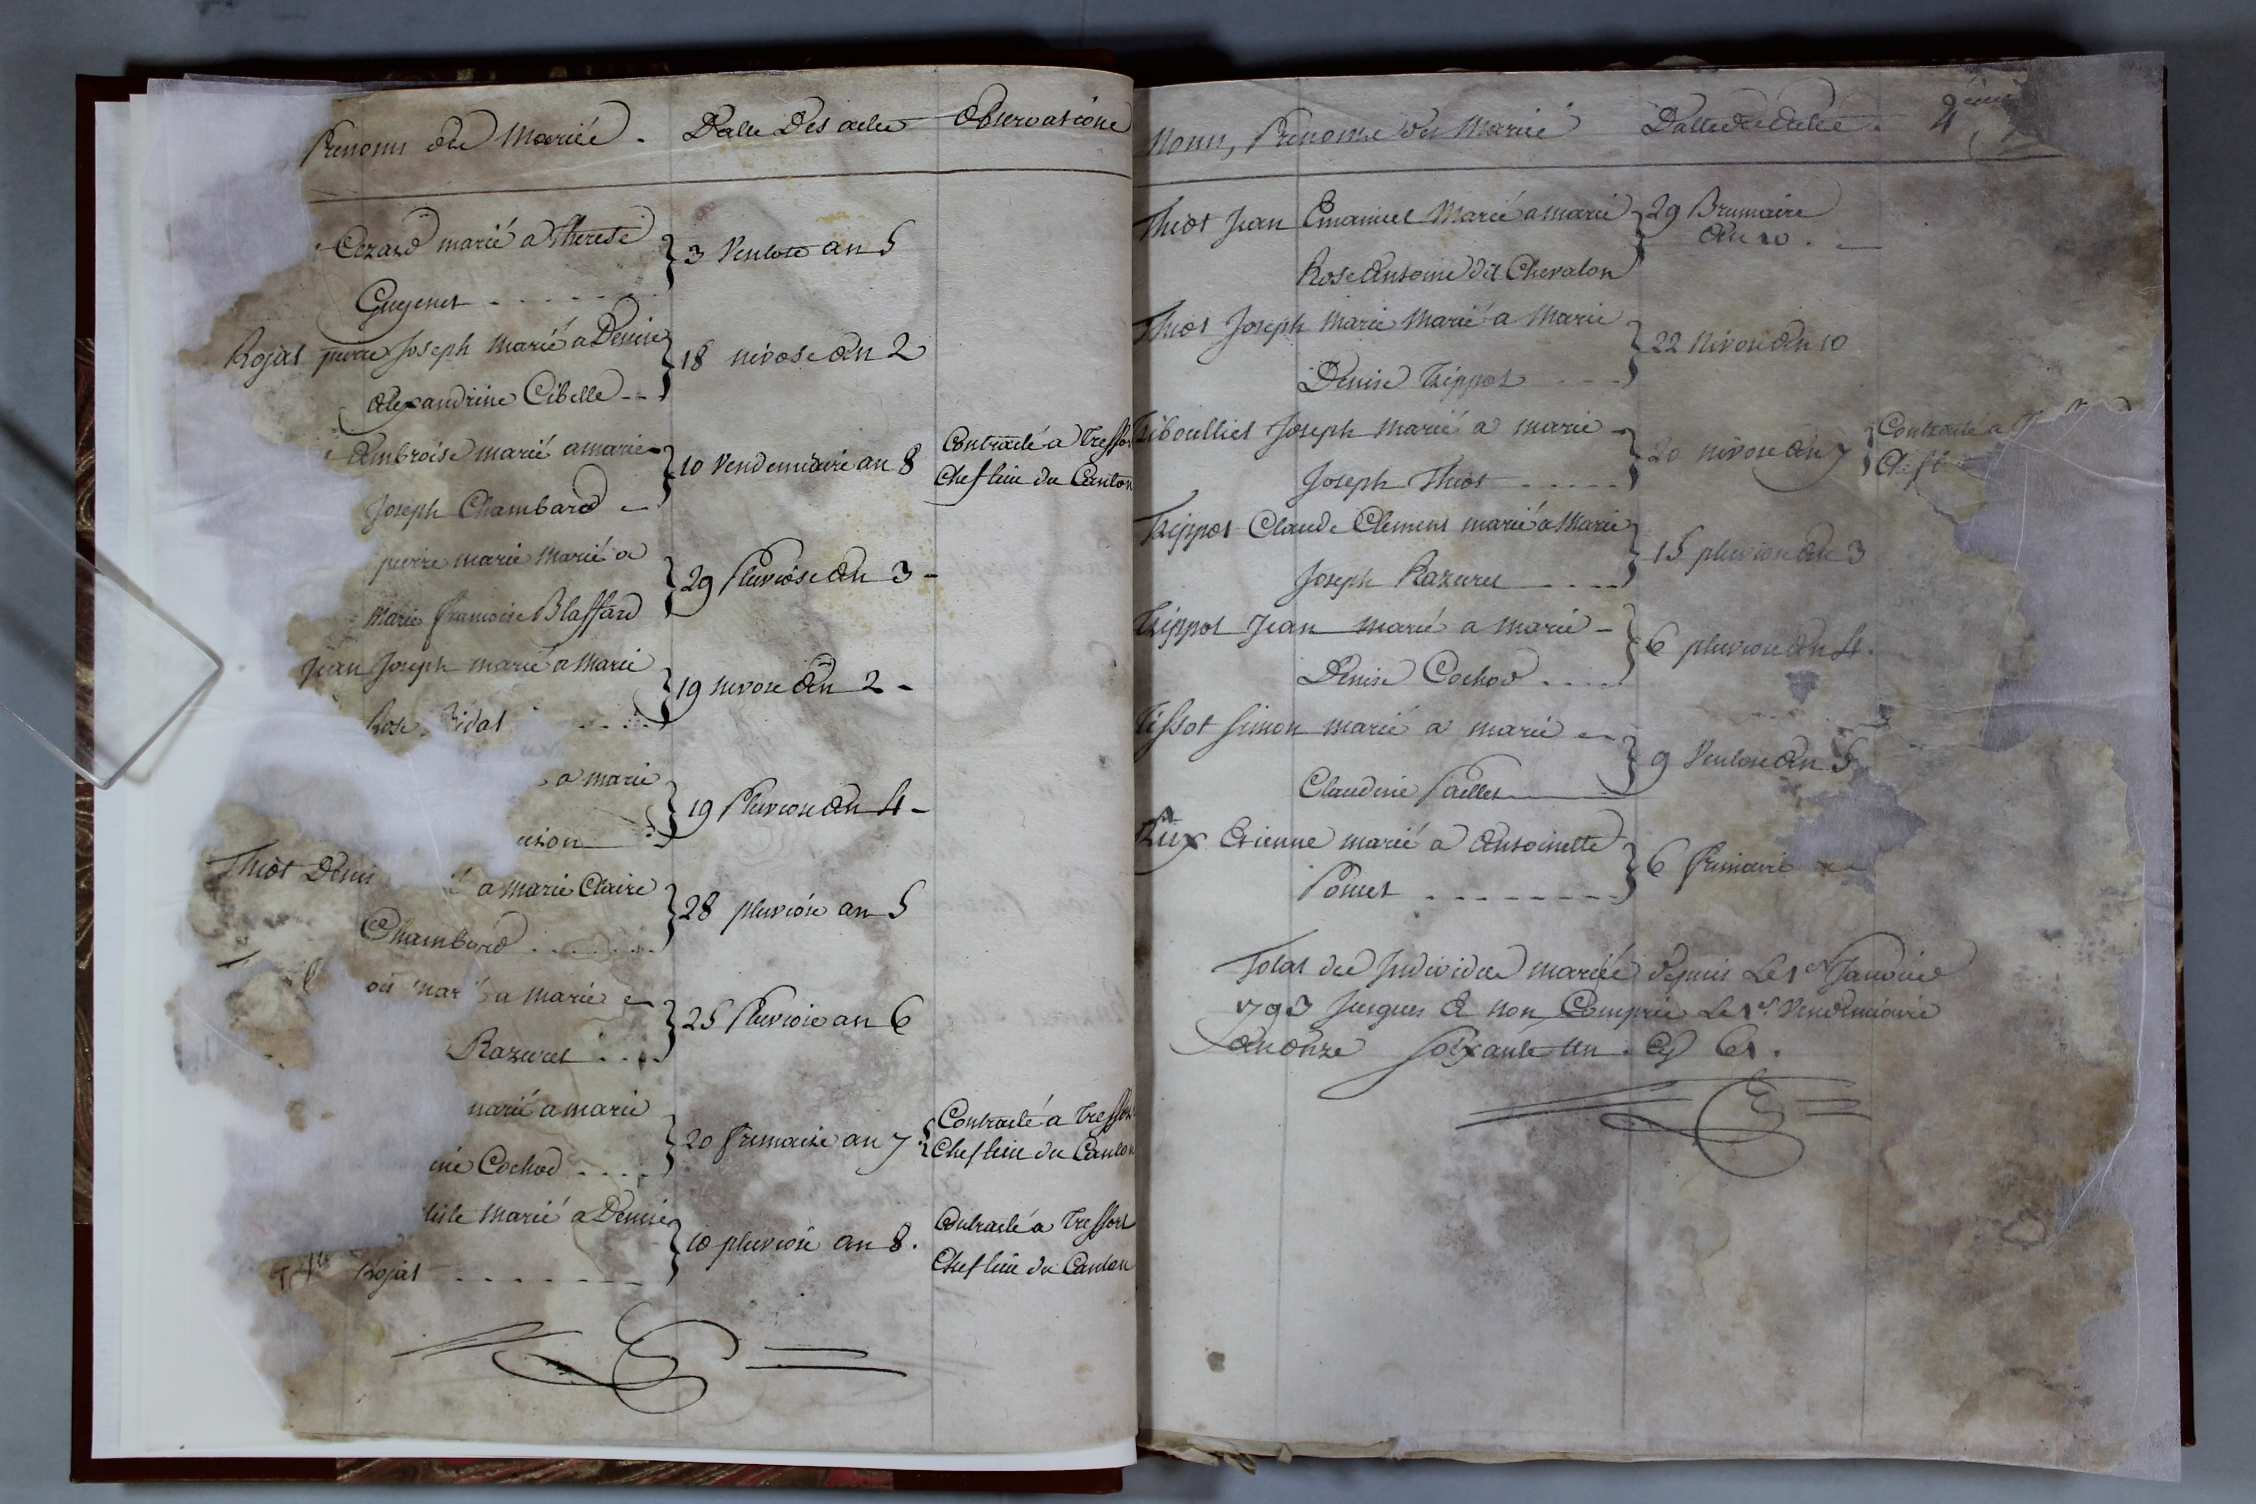 Prenoms des Mariés. Datte Des actes Observations
Cezard marié a Therese
Guyenet
3 Ventose an 5
Rojat pierre Joseph Marié a Denise
alexandrine Cibelle
18 nivose an 2
Ambroise marié a marie
Joseph Chambard
10 Vendemiaire an 8
Contracté a Treffort
Chef lieu du Canton
pierre marie Marié a
Marie françoise Blaffard
29 Pluviose an 3
Jean Joseph marié a Marie
Rose Vidal
19 nivose an 2
a marie
19 Pluviose an 4
Thiot Denis a marie Claire
Chambard
28 pluviose an 5
marié a marie
Razuret
25 Pluviose an 6
marié a marie
Cochod
20 frimaire an 7
Contracté a Treffort
Chef lieu du Canton
Marié a Denise
Rojat
10 pluviose an 8.
Contracté a Treffort
Chef lieu du Canton
Noms, Prenoms des Mariés Datte des actes. 4
Thiot Jean Emanuel Marié a marie
Rose Antoine dit Chevalon
29 Brumaire
an 10.
Thiot Joseph Marie Marié a Marie
Denise Trippot
22 Nivose an 10
Tiboulliet Joseph marié a marie
Joseph Thiot
20 nivose an 7
Contracté a
Chef
Trippot Claude Clement marié a Marie
Joseph Razuret
15 pluviose an 3
Trippot Jean marié a marie
Denise Cochod
6 pluviose an 4.
Tissot Simon marié a marie
Claudine Paillet
9 Ventose an 5
Etienne marié a Antoinette
Pomet
6 frimaire
Total des Individus mariés depuis Le 1er Janvier
1793 Jusques & non Compris Le 1er Vendemiaire
an onze Soixante un. Cy 61.